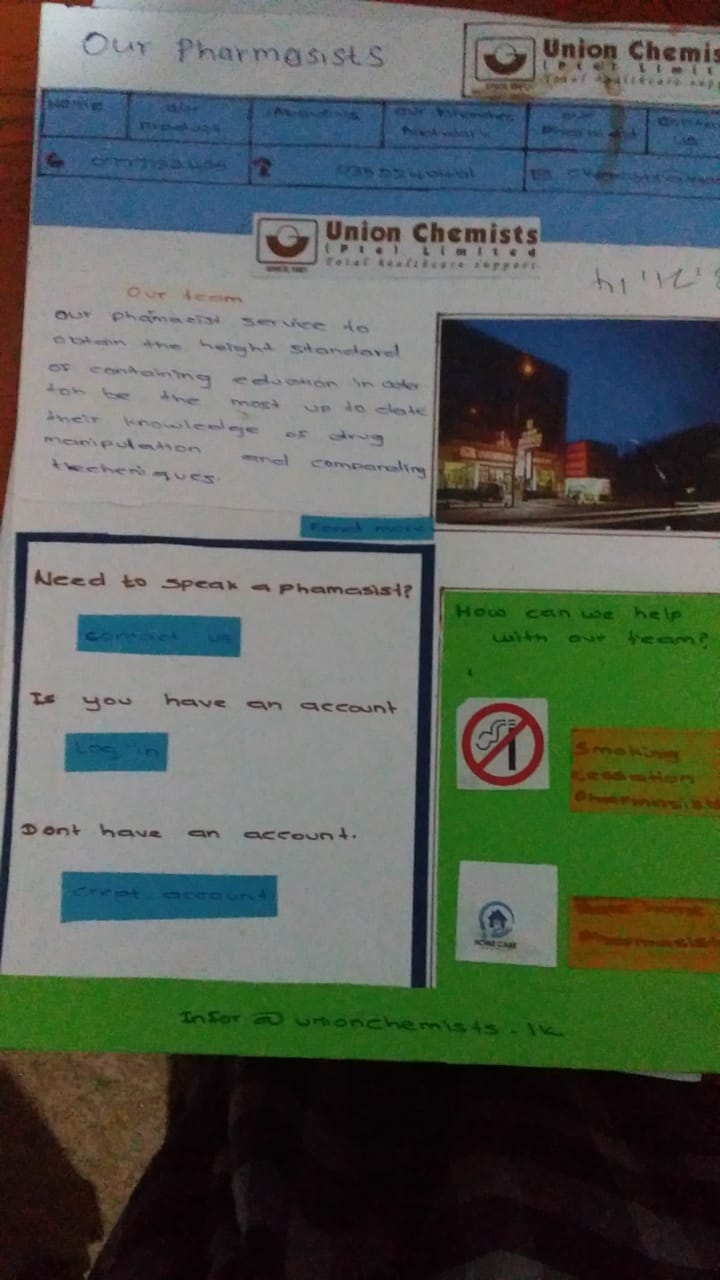 Our Pharmasists
Union Chemis
(Pte) Limit
Total healthcare supp
SINCE 1907
Home
Our
Product
About us
Our Branches
Network
Our
Us
Union Chemists
(Pte) Limited
Total healthcare support
SINCE 1907
Our team
Our phamacist service to
obtain the height standard
of containing eduation in oder
toh be the most up to date
their knowledge of drug
manipulation and componding
Read more
Need to speak a phamasist?
contact us
Is you have an account
Log in
Dont have an account.
Crept account
How can we help
with our team?
Smoking
cessation
Pharmasist
HOME CARE
Pharmasist
Infor @ unionchemists.lk